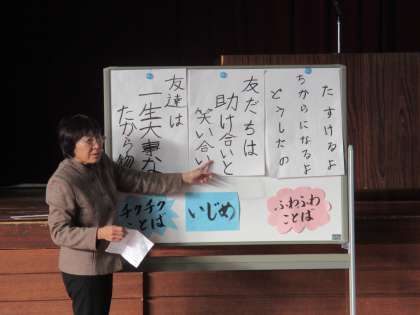 たすけるよ
ちからになるよ
どうしたの
友だちは
助け合いと
笑い合い
友達は
一生大事な
たから物
チクチク
ことば
いじめ
ふわふわ
ことば